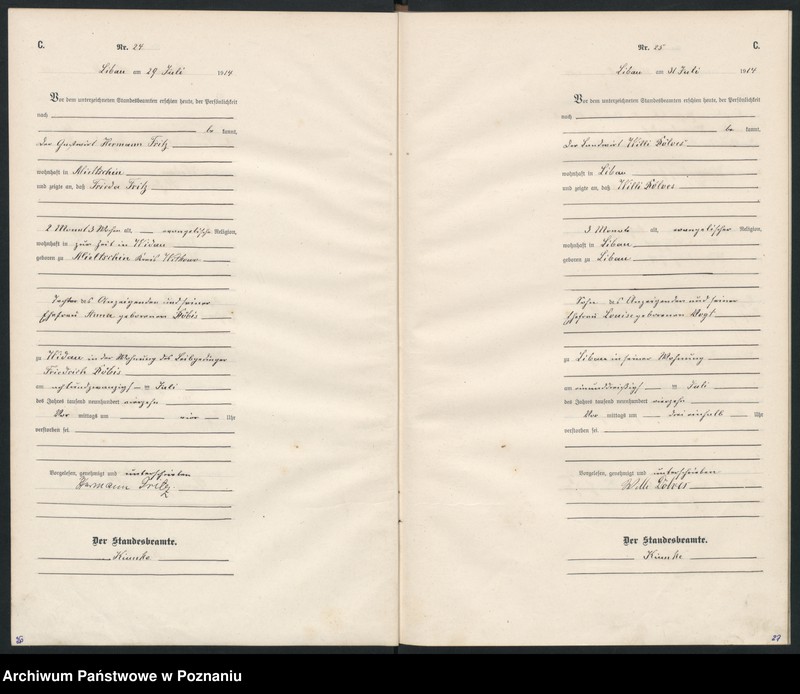 C.
Nr. 24
Libau am 29 Juli 1914
Vor dem unterzeichneten Standesbeamten erschien heute, der Persönlichkeit
nach
be kannt,
der Gastwirt Hermann Fritz
wohnhaft in Mieltschin
und zeigte an, daß Frieda Fritz
2 Monat 3 Wochen alt, evangelische Religion,
wohnhaft in zur Zeit in Widau
geboren zu Mieltschin Kreis Witkowo
Tochter des Anzeigenden und seiner
Ehefrau Anna geborenen
zu Widau in der Wohnung des Leibgedinger
Friedrich
am achtundzwanzigsten Juli
des Jahres tausend neunhundert vierzehn
Vor mittags um vier Uhr
verstorben sei.
Vorgelesen, genehmigt und unterschrieben
Hermann Fritz
Der Standesbeamte.
26
Nr. 25
C.
Libau am 31 Juli 1914
Vor dem unterzeichneten Standesbeamten erschien heute, der Persönlichkeit
nach
be kannt,
der Landwirt Willi
wohnhaft in Libau
und zeigte an, daß Willi
3 Monate alt, evangelischer Religion,
wohnhaft in Libau
geboren zu Libau
Sohn des Anzeigenden und seiner
Ehefrau geborenen Vogt
zu Libau in seiner Wohnung
am einunddreißigsten Juli
des Jahres tausend neunhundert vierzehn
Vor mittags um drei einhalb Uhr
verstorben sei.
Vorgelesen, genehmigt und unterschrieben
Willi
Der Standesbeamte.
27
Archiwum Państwowe w Poznaniu